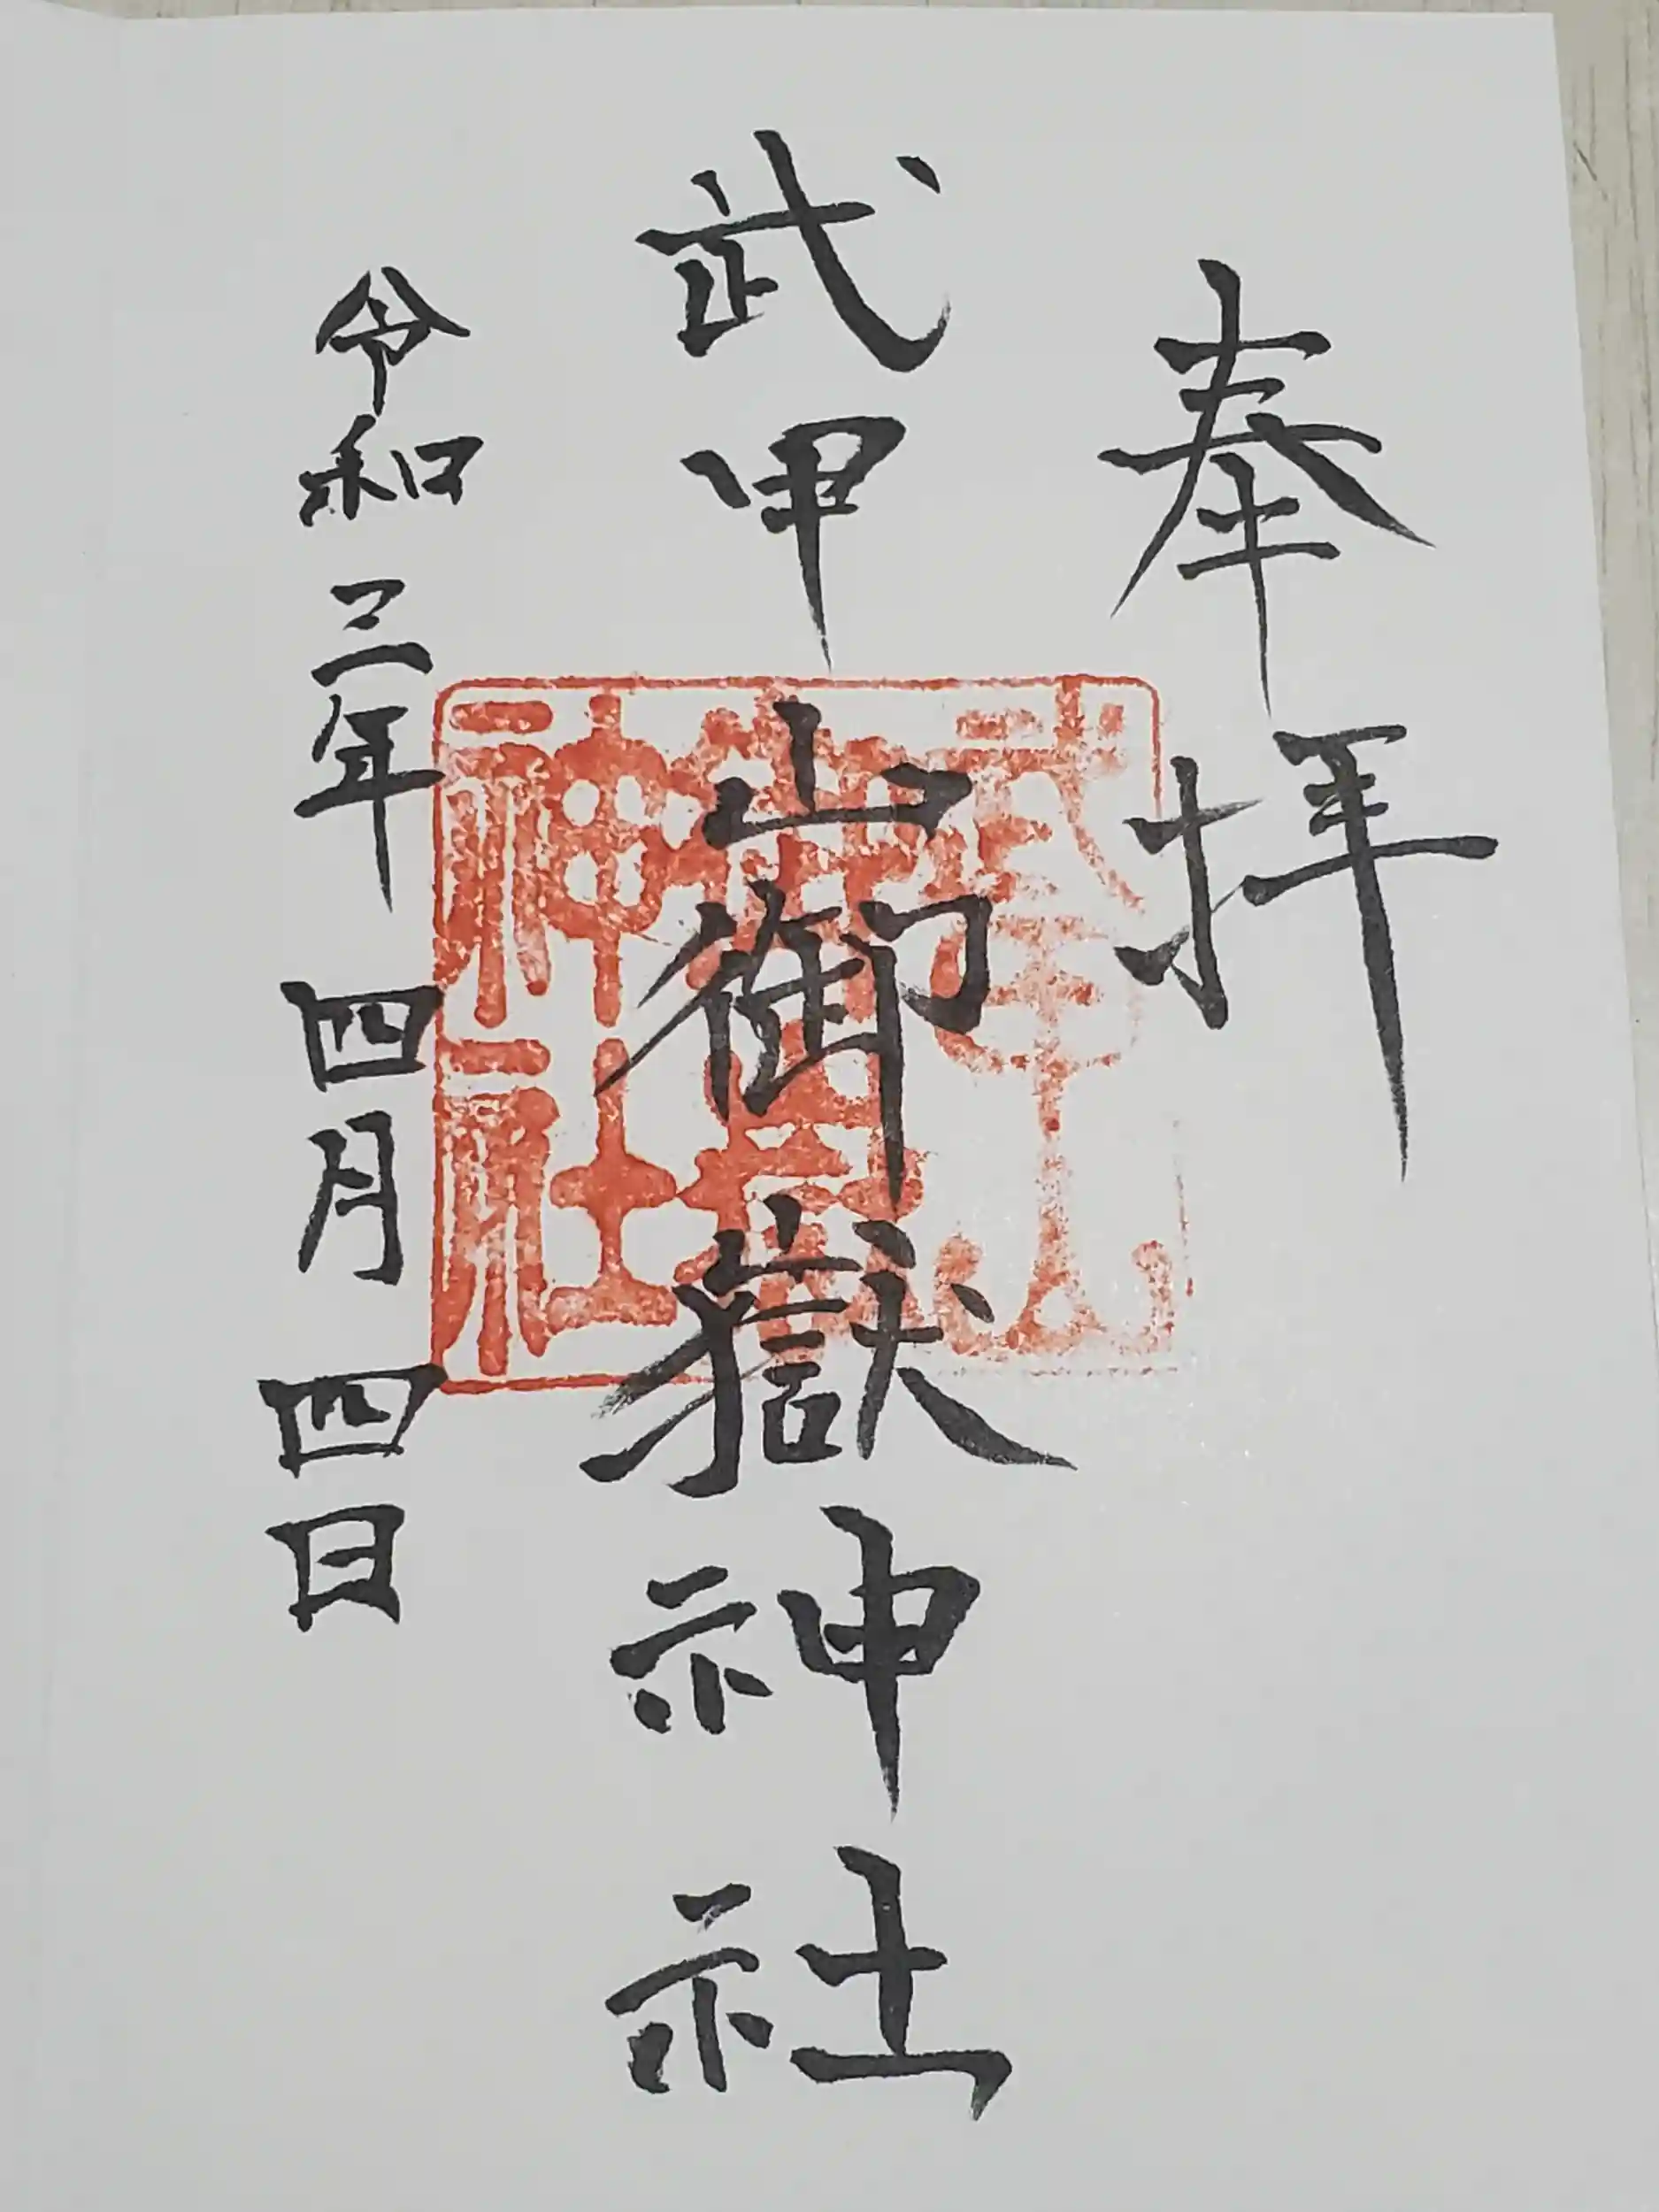 奉拝
武甲山御嶽神社
令和三年四月四日
武甲山
御嶽
神社